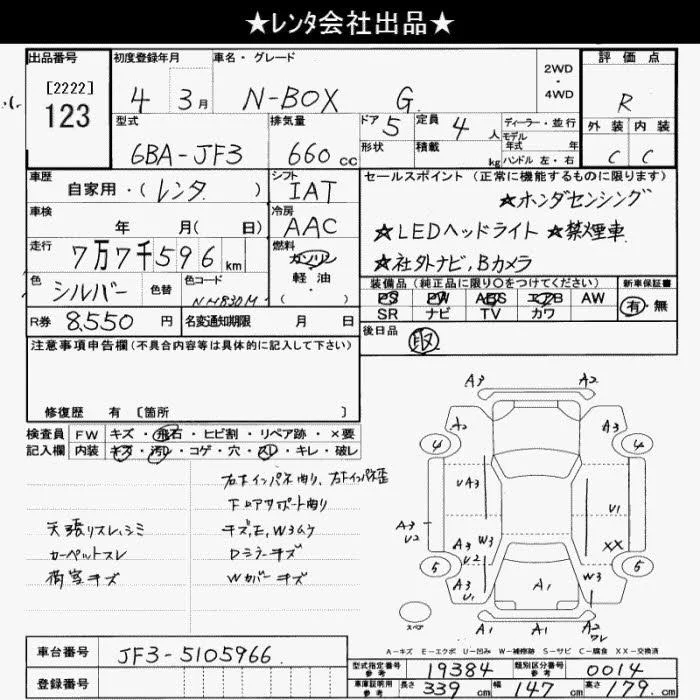 ★レンタ会社出品★
出品番号
[2222]
123
初度登録年月
4年 3月
車名・グレード
N-BOX G
2WD
・
4WD
評価点
R
外装 内装
C C
型式
6BA-JF3
排気量
660cc
ドア 5
形状
定員 4人
積載 kg
ディーラー・並行
モデル
年式 年
ハンドル 左・右
車歴
自家用・(レンタ)
シフト
IAT
車検
年 月( 日)
冷房
AAC
走行
7万7千596km
燃料
ガソリン
軽油
・( )
色
シルバー
色替
色コード
NH830M
R券 8,550円
名変通知期限 月 日
セールスポイント(正常に機能するものに限ります)
★ホンダセンシング
★LEDヘッドライト ★禁煙車
★社外ナビ,Bカメラ
装備品(純正品に限り○をつけてください)
PS PW ABS エアB AW
SR ナビ TV カワ
新車保証書
有・無
後日品
取
注意事項申告欄(不具合内容等は具体的に記入して下さい)
修復歴 有 〔箇所 〕
検査員
記入欄
FW キズ・飛石・ヒビ割・リペア跡・×要
内装 キズ・汚レ・コゲ・穴・スレ・キレ・破レ
右右インパネ曲り、右下インパネ歪
下ロアサポート曲り
天張リスレ,シミ
キズ,E,W3ムケ
カーペットスレ
Dミラーキズ
荷室キズ
Wカバーキズ
A3 A2
4 A2 A3 4
UA3
U1
A3
U2
A3
U2
W3
XX
5 A3
U1
A1 W3 5
スペア
A1 A1 A2
ワレ
A-キズ E-エクボ U-凹み W-補修跡 S-サビ C-腐食 XX-交換済
車台番号
JF3-5105966
登録番号
型式指定番号
参考
19384
類別区分番号
参考
0014
車庫証明用
参考
長さ 339cm 幅 147cm 高さ 179cm